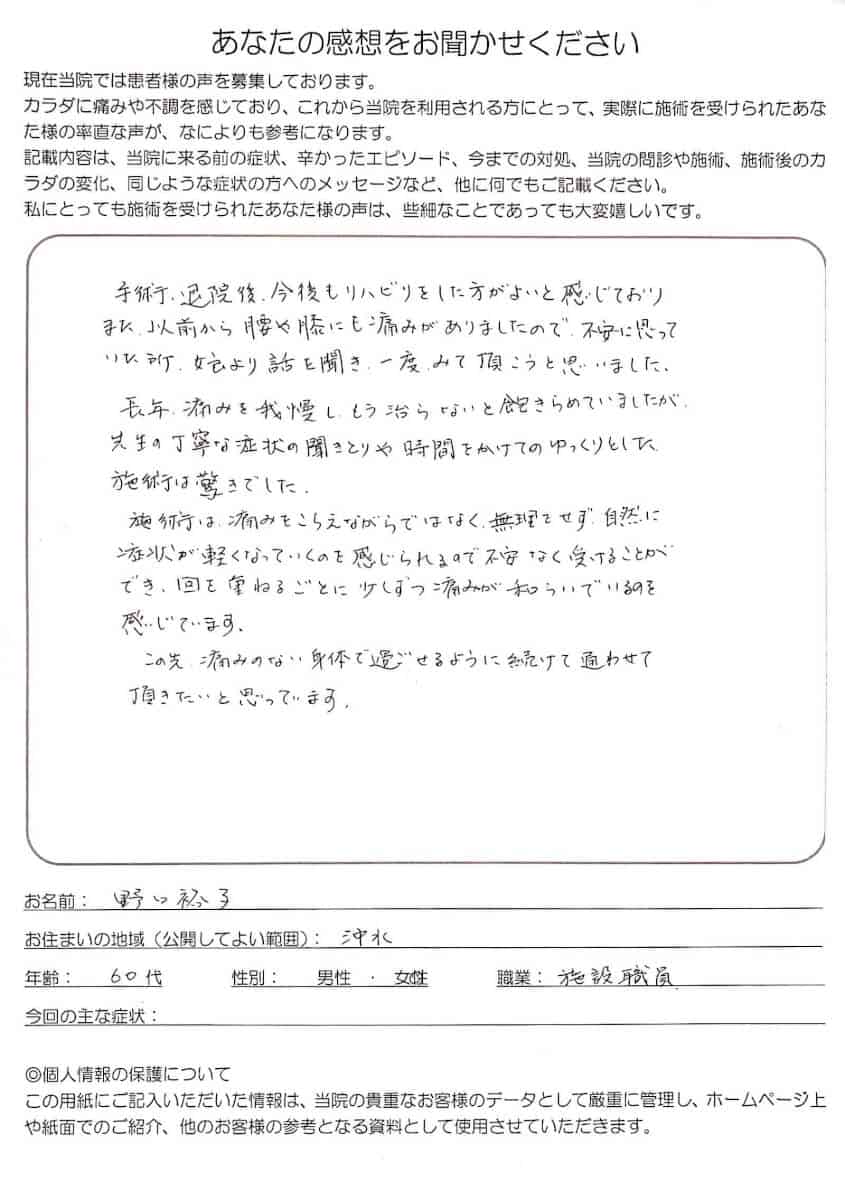 あなたの感想をお聞かせください
現在当院では患者様の声を募集しております。
カラダに痛みや不調を感じており、これから当院を利用される方にとって、実際に施術を受けられたあな
た様の率直な声が、なによりも参考になります。
記載内容は、当院に来る前の症状、辛かったエピソード、今までの対処、当院の問診や施術、施術後のカ
ラダの変化、同じような症状の方へのメッセージなど、他に何でもご記載ください。
私にとっても施術を受けられたあなた様の声は、些細なことであっても大変嬉しいです。
手術、退院後、今後もリハビリをした方がよいと感じており
また、以前から腰や膝にも痛みがありましたので、不安に思って
いた所、娘より話を聞き、一度、みて頂こうと思いました、
長年、痛みを我慢し、もう治らないと飽きらめていましたが、
先生の丁寧な症状の聞きとりや時間をかけてのゆっくりとした
施術は驚きでした、
施術は、痛みをこらえながらではなく、無理をせず、自然に
症状が軽くなっていくのを感じられるので不安なく受けることが
でき、回を重ねるごとに少しずつ痛みが和らいでいるのを
感じています、
この先、痛みのない身体で過ごせるように続けて通わせて
頂きたいと思っています、
お名前： 野口裕子
お住まいの地域（公開してよい範囲）： 沖水
年齢： 60代 性別： 男性 ・ 女性 職業： 施設職員
今回の主な症状：
◎個人情報の保護について
この用紙にご記入いただいた情報は、当院の貴重なお客様のデータとして厳重に管理し、ホームページ上
や紙面でのご紹介、他のお客様の参考となる資料として使用させていただきます。